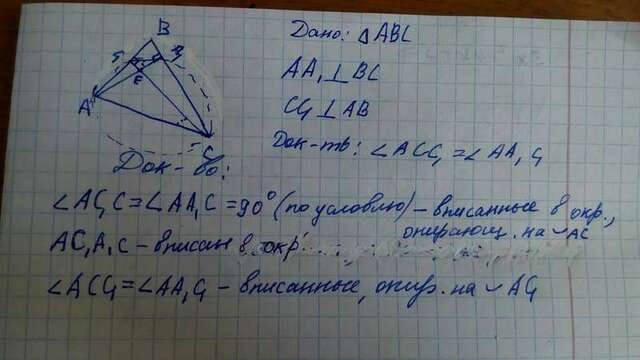 Дано: △ABC
AA₁⊥BC
CC₁⊥AB
Док-ть: ∠ACC₁=∠AA₁C₁
B
A
C
Док-во:
∠AC₁C=∠AA₁C=90° (по условию) – вписанные в окр.,
опирающ. на ◡AC
AC₁A₁C – вписан в окр.
∠ACC₁=∠AA₁C₁ – вписанные, опир. на ◡AC₁